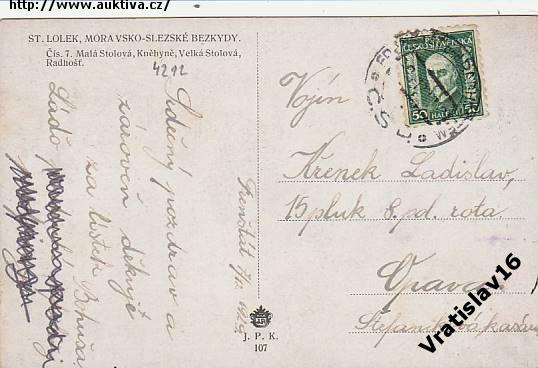 http://www.auktiva.cz/
ST. LOLEK, MORAVSKO-SLEZSKÉ BEZKYDY.
Čís. 7. Malá Stolová, Kněhyně, Velká Stolová,
Radhošť.
4212
Srdečný pozdrav a
zároveň děkuji
za lístek Bohuša
Láďo
Frenštát
J. P. K.
107
ČESKOSLOVENSKÁ
50 HALÉŘŮ 50
Vojín
Křenek Ladislav,
15 pluk 8. pd. rota
Opava
Štefanikova kasárna
Vratislav16